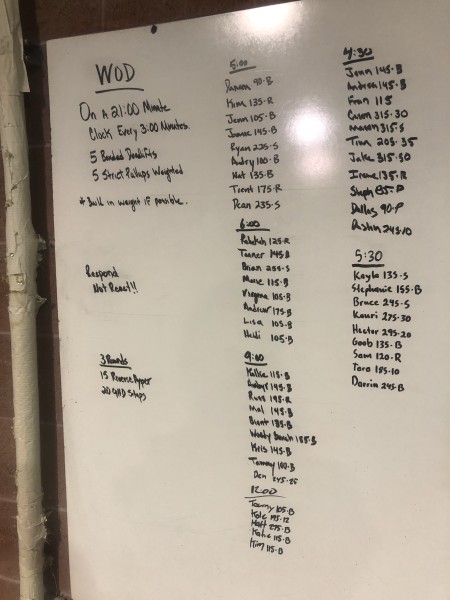 WOD
On A 21:00 Minute
Clock Every 3:00 Minutes.
5 Banded Deadlifts
5 Strict Pullups Weighted
* Build in weight if possible.
Respond
Not React!!
3 Rounds
15 Reverse Hyper
20 GHD Situps
5:00
90-B
Kim 135-R
Jenn 105-B
145-B
Ryan 225-S
Audry 100-B
Nat 135-B
Trent 175-R
Dean 235-S
6:00
Rebekah 125-R
Tanner 145-B
Brian 255-S
115-B
Virginia 105-B
Andrew 175-B
Lisa 105-B
Heidi 105-B
9:00
Kallie 115-B
145-B
Russ 195-R
Mel 145-B
Brent 185-B
Woody Beach 155-B
Kris 145-B
Tammy 100-B
Dan 245-25
12:00
Tammy 105-B
Kyle 195-12
Matt 275-B
Katie 115-B
Kim 115-B
4:30
Jenn 145-B
Andrea 145-B
Fran 115
Cason 315-30
Mason 315-S
Tim 205-35
Jake 315-50
Irene 135-R
Steph 85-P
Dallas 90-P
Dustin 245-10
5:30
Kayla 135-S
Stephanie 155-B
Bruce 245-S
Kouri 275-30
Hector 295-20
Goob 135-B
Sam 120-R
Tara 155-10
Darrin 245-B